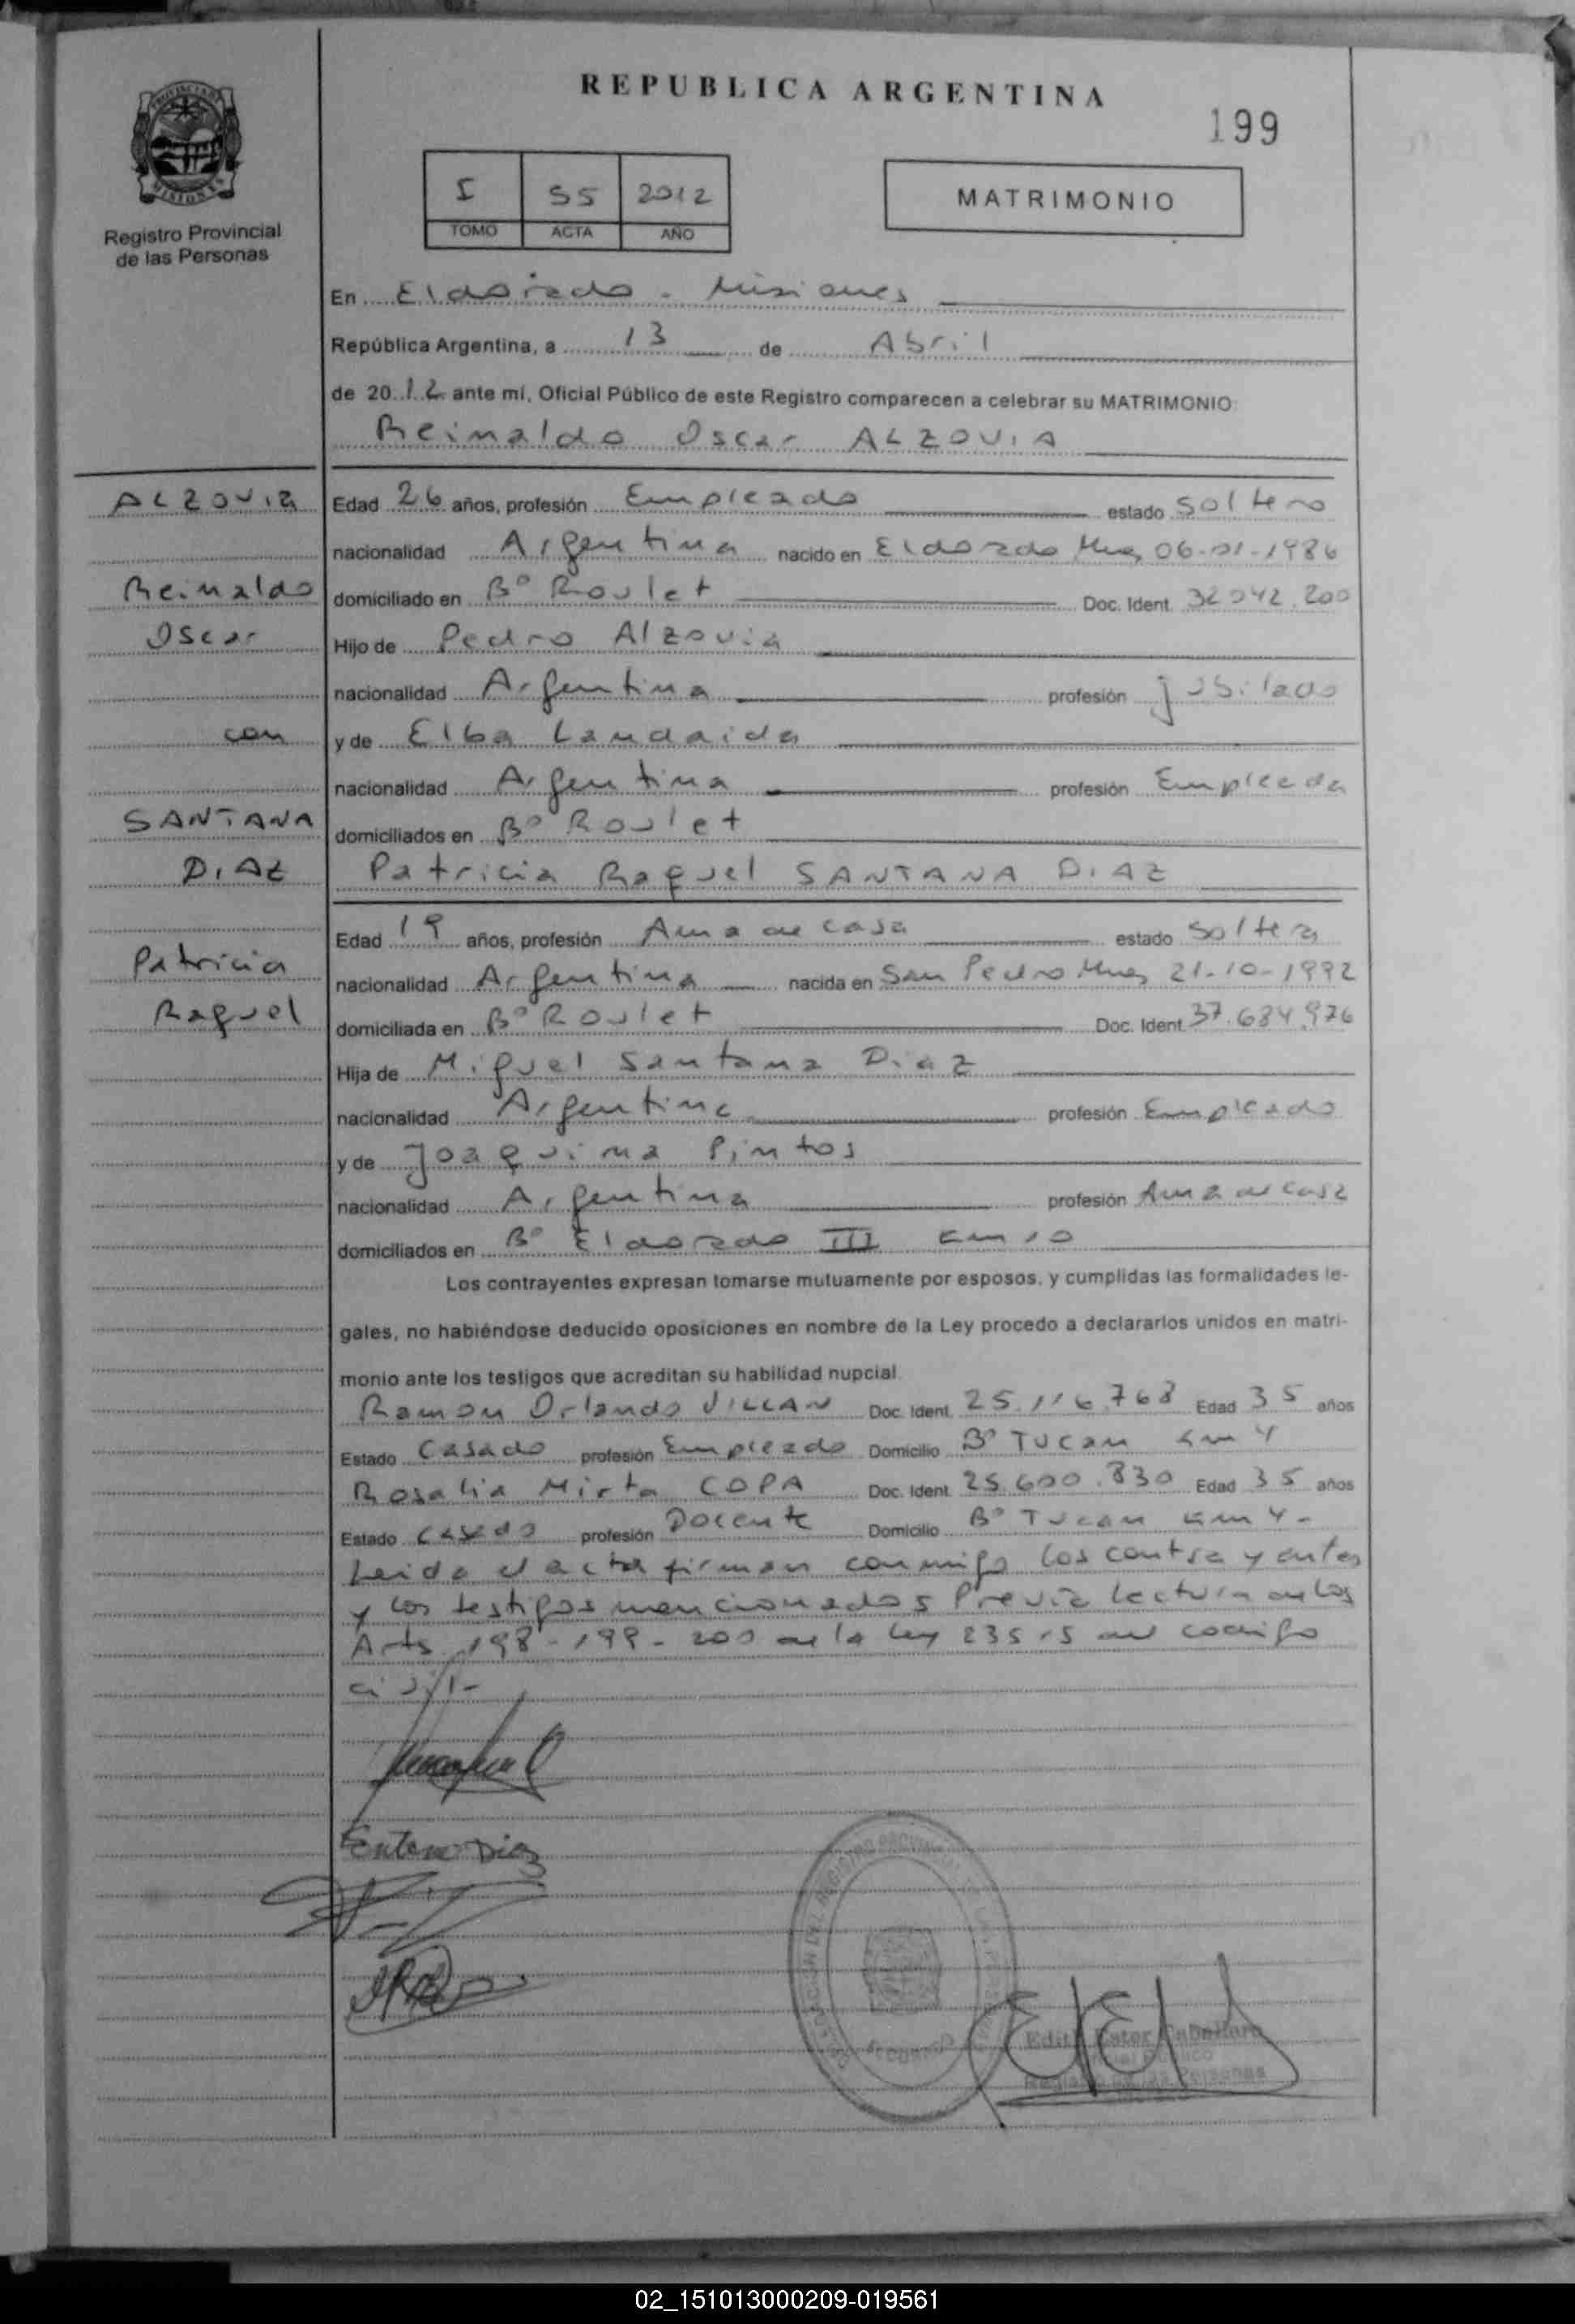 REPUBLICA ARGENTINA
199
PROVINCIA DE
MISIONES
Registro Provincial
de las Personas
I 55 2012
TOMO ACTA AÑO
MATRIMONIO
En Eldorado - Misiones
República Argentina, a 13 de Abril
de 2012 ante mí, Oficial Público de este Registro comparecen a celebrar su MATRIMONIO
Reinaldo Oscar ALZOVIA
ALZOVIA
Reinaldo
Oscar
con
SANTANA
DIAZ
Patricia
Raquel
Edad 26 años, profesión Empleado estado soltero
nacionalidad Argentina nacido en Eldorado Mnes 06-01-1986
domiciliado en Bº Roulet Doc. Ident. 32.042.200
Hijo de Pedro Alzovia
nacionalidad Argentina profesión jubilado
y de Elba Landaida
nacionalidad Argentina profesión Empleada
domiciliados en Bº Roulet
Patricia Raquel SANTANA DIAZ
Edad 19 años, profesión Ama de casa estado soltera
nacionalidad Argentina nacida en San Pedro Mnes 21-10-1992
domiciliada en Bº Roulet Doc. Ident. 37.684.976
Hija de Miguel Santana Diaz
nacionalidad Argentina profesión Empleado
y de Joaquina Pintos
nacionalidad Argentina profesión Ama de casa
domiciliados en Bº Eldorado III km 10
Los contrayentes expresan tomarse mutuamente por esposos, y cumplidas las formalidades le-
gales, no habiéndose deducido oposiciones en nombre de la Ley procedo a declararlos unidos en matri-
monio ante los testigos que acreditan su habilidad nupcial.
Ramon Orlando VILLAN Doc. Ident. 25.116.768 Edad 35 años
Estado Casado profesión Empleado Domicilio Bº Tucan km 4
Rosalia Mirta COPA Doc. Ident. 25.600.830 Edad 35 años
Estado casado profesión Docente Domicilio Bº Tucan km 4-
Leida el acta firman conmigo los contrayentes
y los testigos mencionados Previa lectura de los
Arts 198-199-200 de la Ley 23515 del codigo
civil-
Diaz
Edith Ester Caballero
Oficial Público
Registro de las Personas
02_151013000209-019561